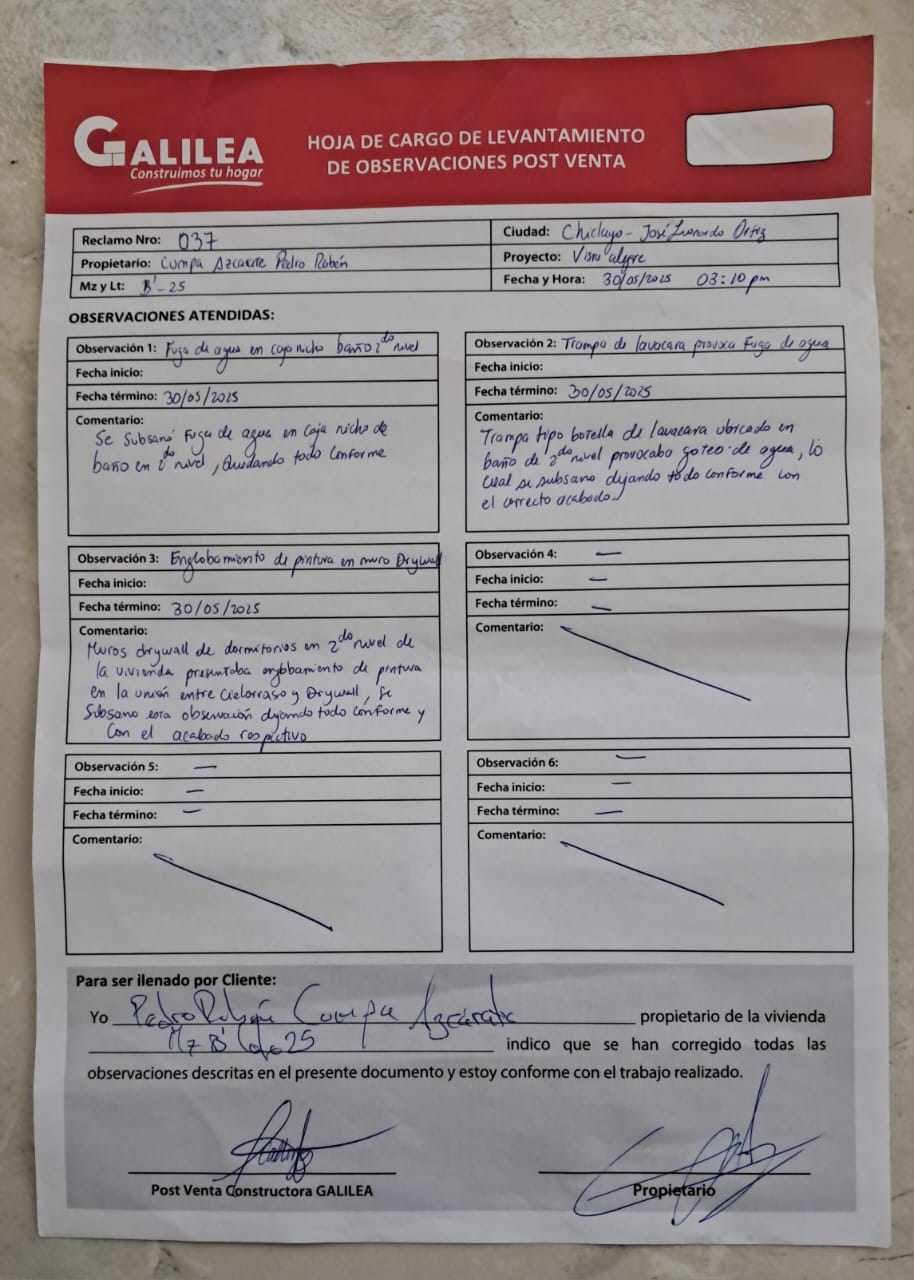 GALILEA
Construimos tu hogar
HOJA DE CARGO DE LEVANTAMIENTO
DE OBSERVACIONES POST VENTA
Reclamo Nro: 037
Propietario: Cumpa Azcarate Pedro Rubén
Mz y Lt: B' - 25
Ciudad: Chiclayo - José Leonardo Ortiz
Proyecto: Vista alegre
Fecha y Hora: 30/05/2025 03:10 pm
OBSERVACIONES ATENDIDAS:
Observación 1: Fuga de agua en caja nicho baño 2do nivel
Fecha inicio:
Fecha término: 30/05/2025
Comentario:
Se Subsanó Fuga de agua en Caja nicho de
baño en 2do nivel, Quedando todo conforme
Observación 2: Trampa de lavacara provoca Fuga de agua
Fecha inicio:
Fecha término: 30/05/2025
Comentario:
Trampa tipo botella de lavacara ubicado en
baño de 2do nivel provocaba goteo de agua, lo
cual se subsano dejando todo conforme con
el correcto acabado.
Observación 3: Englobamiento de pintura en muro Drywall
Fecha inicio:
Fecha término: 30/05/2025
Comentario:
Muros drywall de dormitorios en 2do nivel de
la vivienda presentaba englobamiento de pintura
en la unión entre Cielorraso y Drywall, Se
Subsano esta observación dejando todo conforme y
Con el acabado respectivo
Observación 4: —
Fecha inicio: —
Fecha término: —
Comentario:
Observación 5: —
Fecha inicio: —
Fecha término: —
Comentario:
Observación 6: —
Fecha inicio: —
Fecha término: —
Comentario:
Para ser ilenado por Cliente:
Yo Pedro Rubén Cumpa Azcárate propietario de la vivienda
Mz B' Lote 25 indico que se han corregido todas las
observaciones descritas en el presente documento y estoy conforme con el trabajo realizado.
Post Venta Constructora GALILEA
Propietario